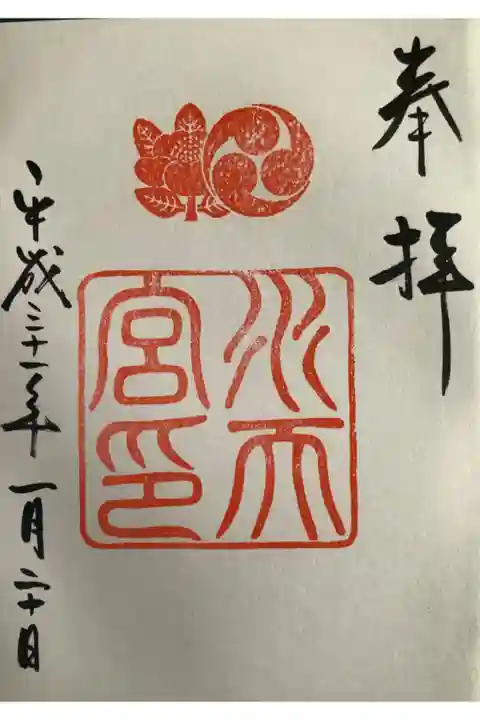 奉拝
水天
宮印
平成三十一年一月二十日